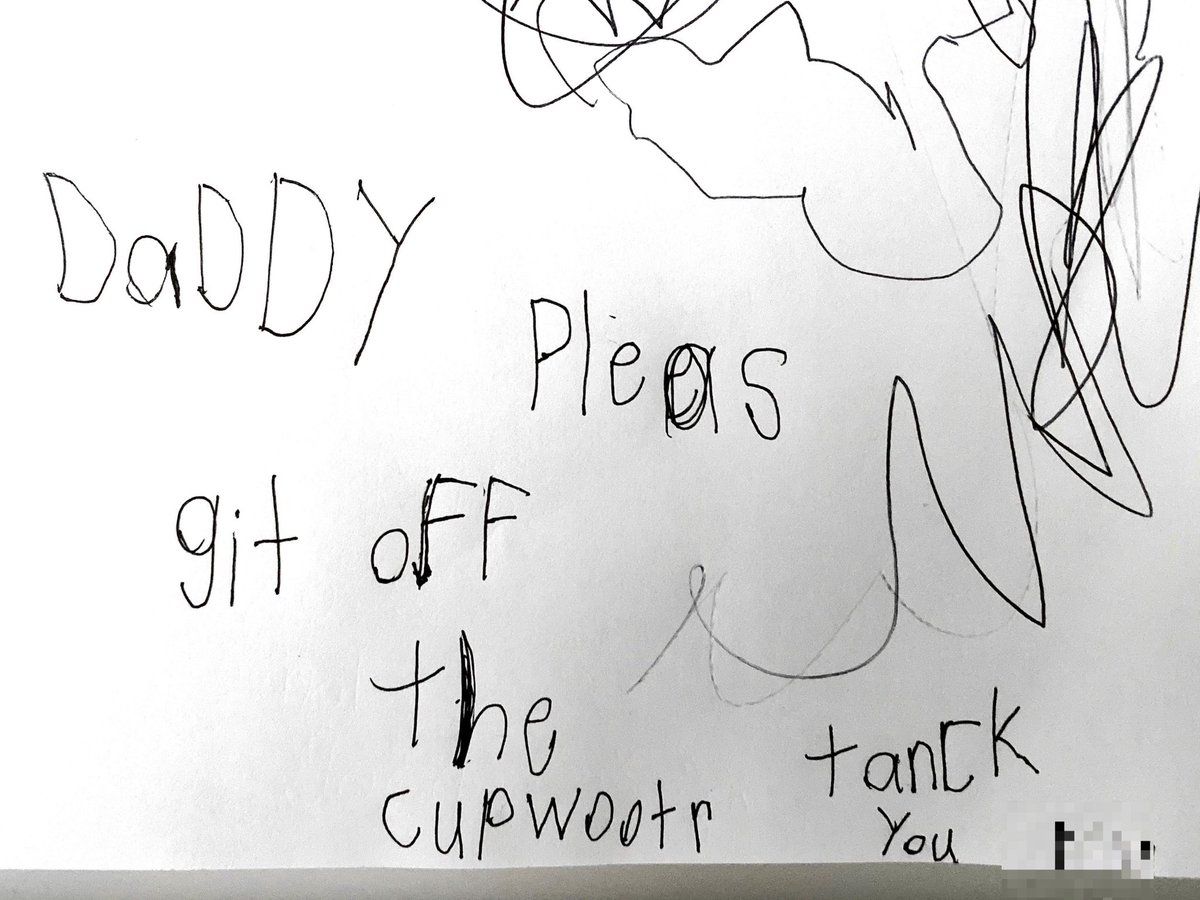 DaDDY
Pleas
git oFF
the
cupwootr
tanck
You